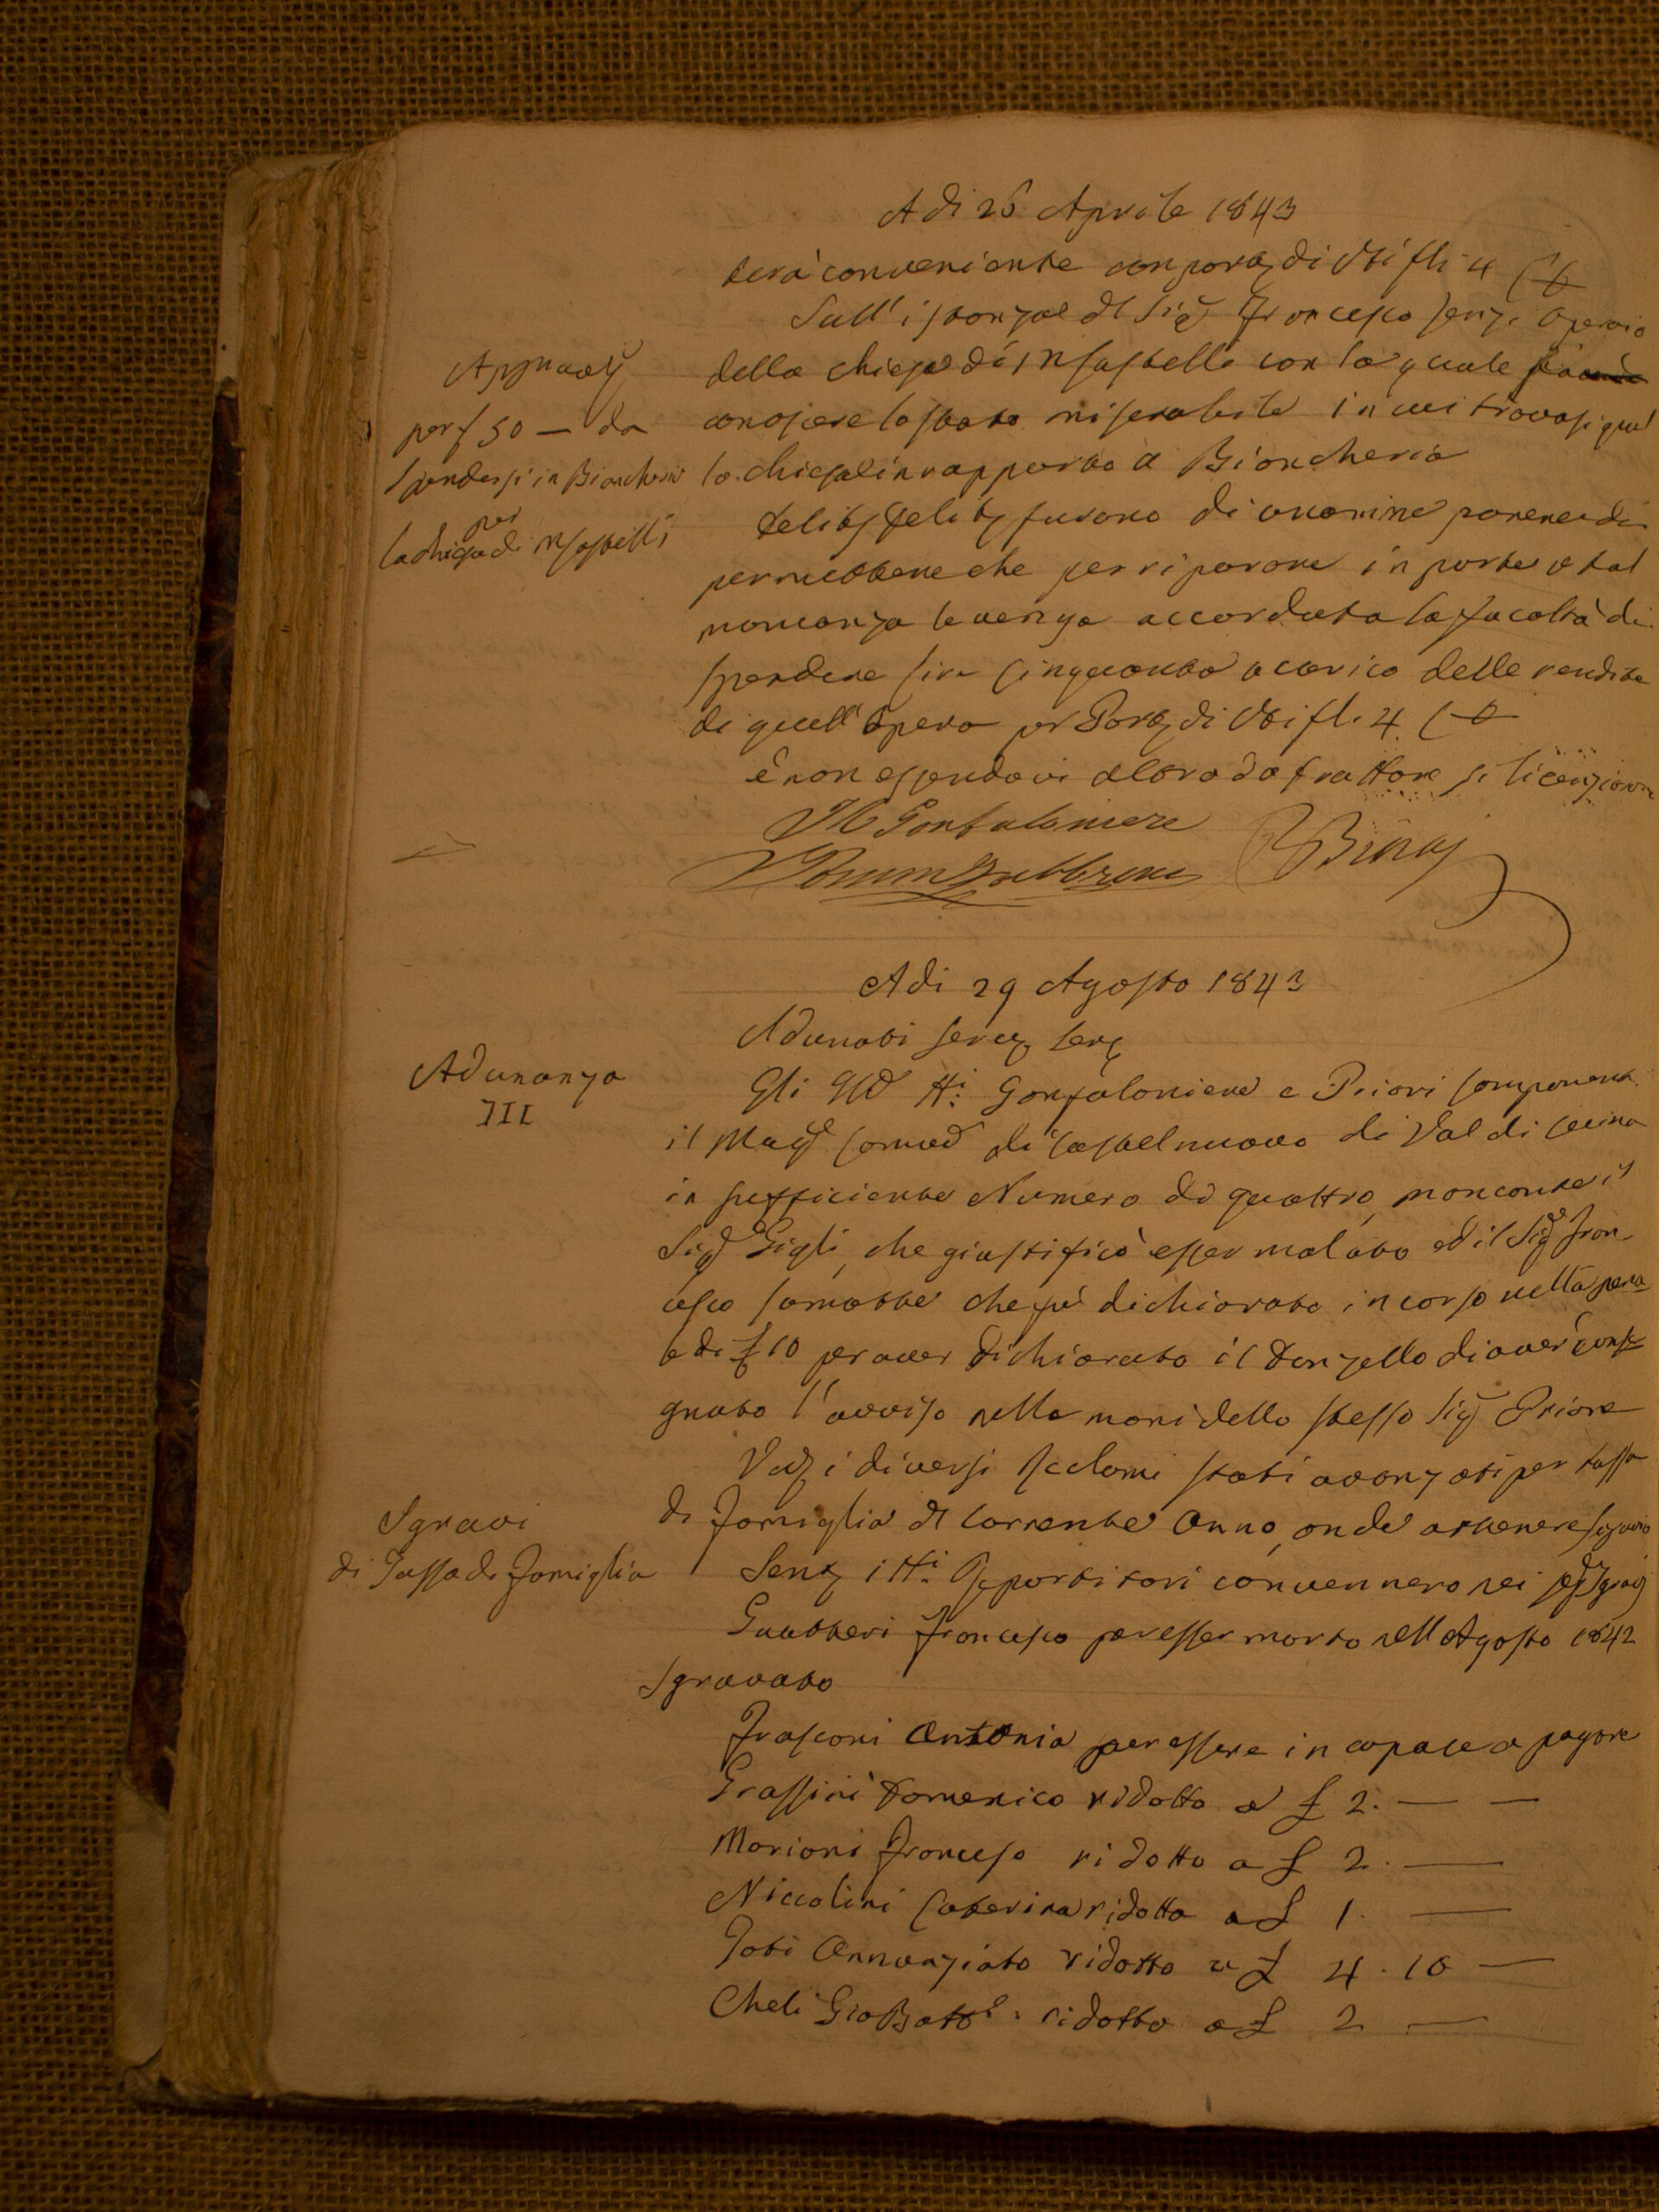 Adi 26 Aprile 1843
terà conveniente con part. di Voti fli 4
Sull'istanza del Sig. Francesco Operaio
della chiesa di con la quale
conoscere lo stato miserabile in cui trovasi quel
la chiesa in rapporto a Biancheria
Approvaz.
per £ 50 — da
spendersi in Biancheria
per
la chiesa di
Delib. Delib. furono di unanime parere di
permettere che per riparare in parte a tal
mancanza le venga accordata la facoltà di
spendere lire cinquanta a carico delle rendite
di quell'Opera per Part. di Voti fli. 4
e non essendovi altro da trattare si licenziarono
Il Gonfaloniere
Binaj
Adi 29 Agosto 1843
Adunati servatis servandis
Adunanza
III
Gli Ill. SS.i Gonfaloniere e Priori componenti
il Mag. Comu. di Castelnuovo di Val di Cecina
in sufficiente Numero di quattro, mancante il
Sig. Gigli, che giustificò esser malato ed il Sig. Fran
cesco che fù dichiarato incorso nella pena
di £ 10 per aver dichiarato il Donzello di aver conse
gnato l'avviso nelle mani dello stesso Sig. Priore
Ved. i diversi Reclami stati avanzati per tassa
di Famiglia del Corrente Anno, onde ottenere sgravio
Sgravi
di Tassa di Famiglia
Sent. i SS.i Repartitori convennero nei seg. Sgravj
Francesco per esser morto nell'Agosto 1842
Sgravato
Frasconi Antonia per essere incapace a pagare
Grassini Domenico ridotto a £ 2. — —
Mariani Francesco ridotto a £ 2. —
Niccolini Caterina ridotta a £ 1. —
Annunziato ridotto a £ 4. 10 —
Cheli Gio Batt.a ridotto a £ 2 —